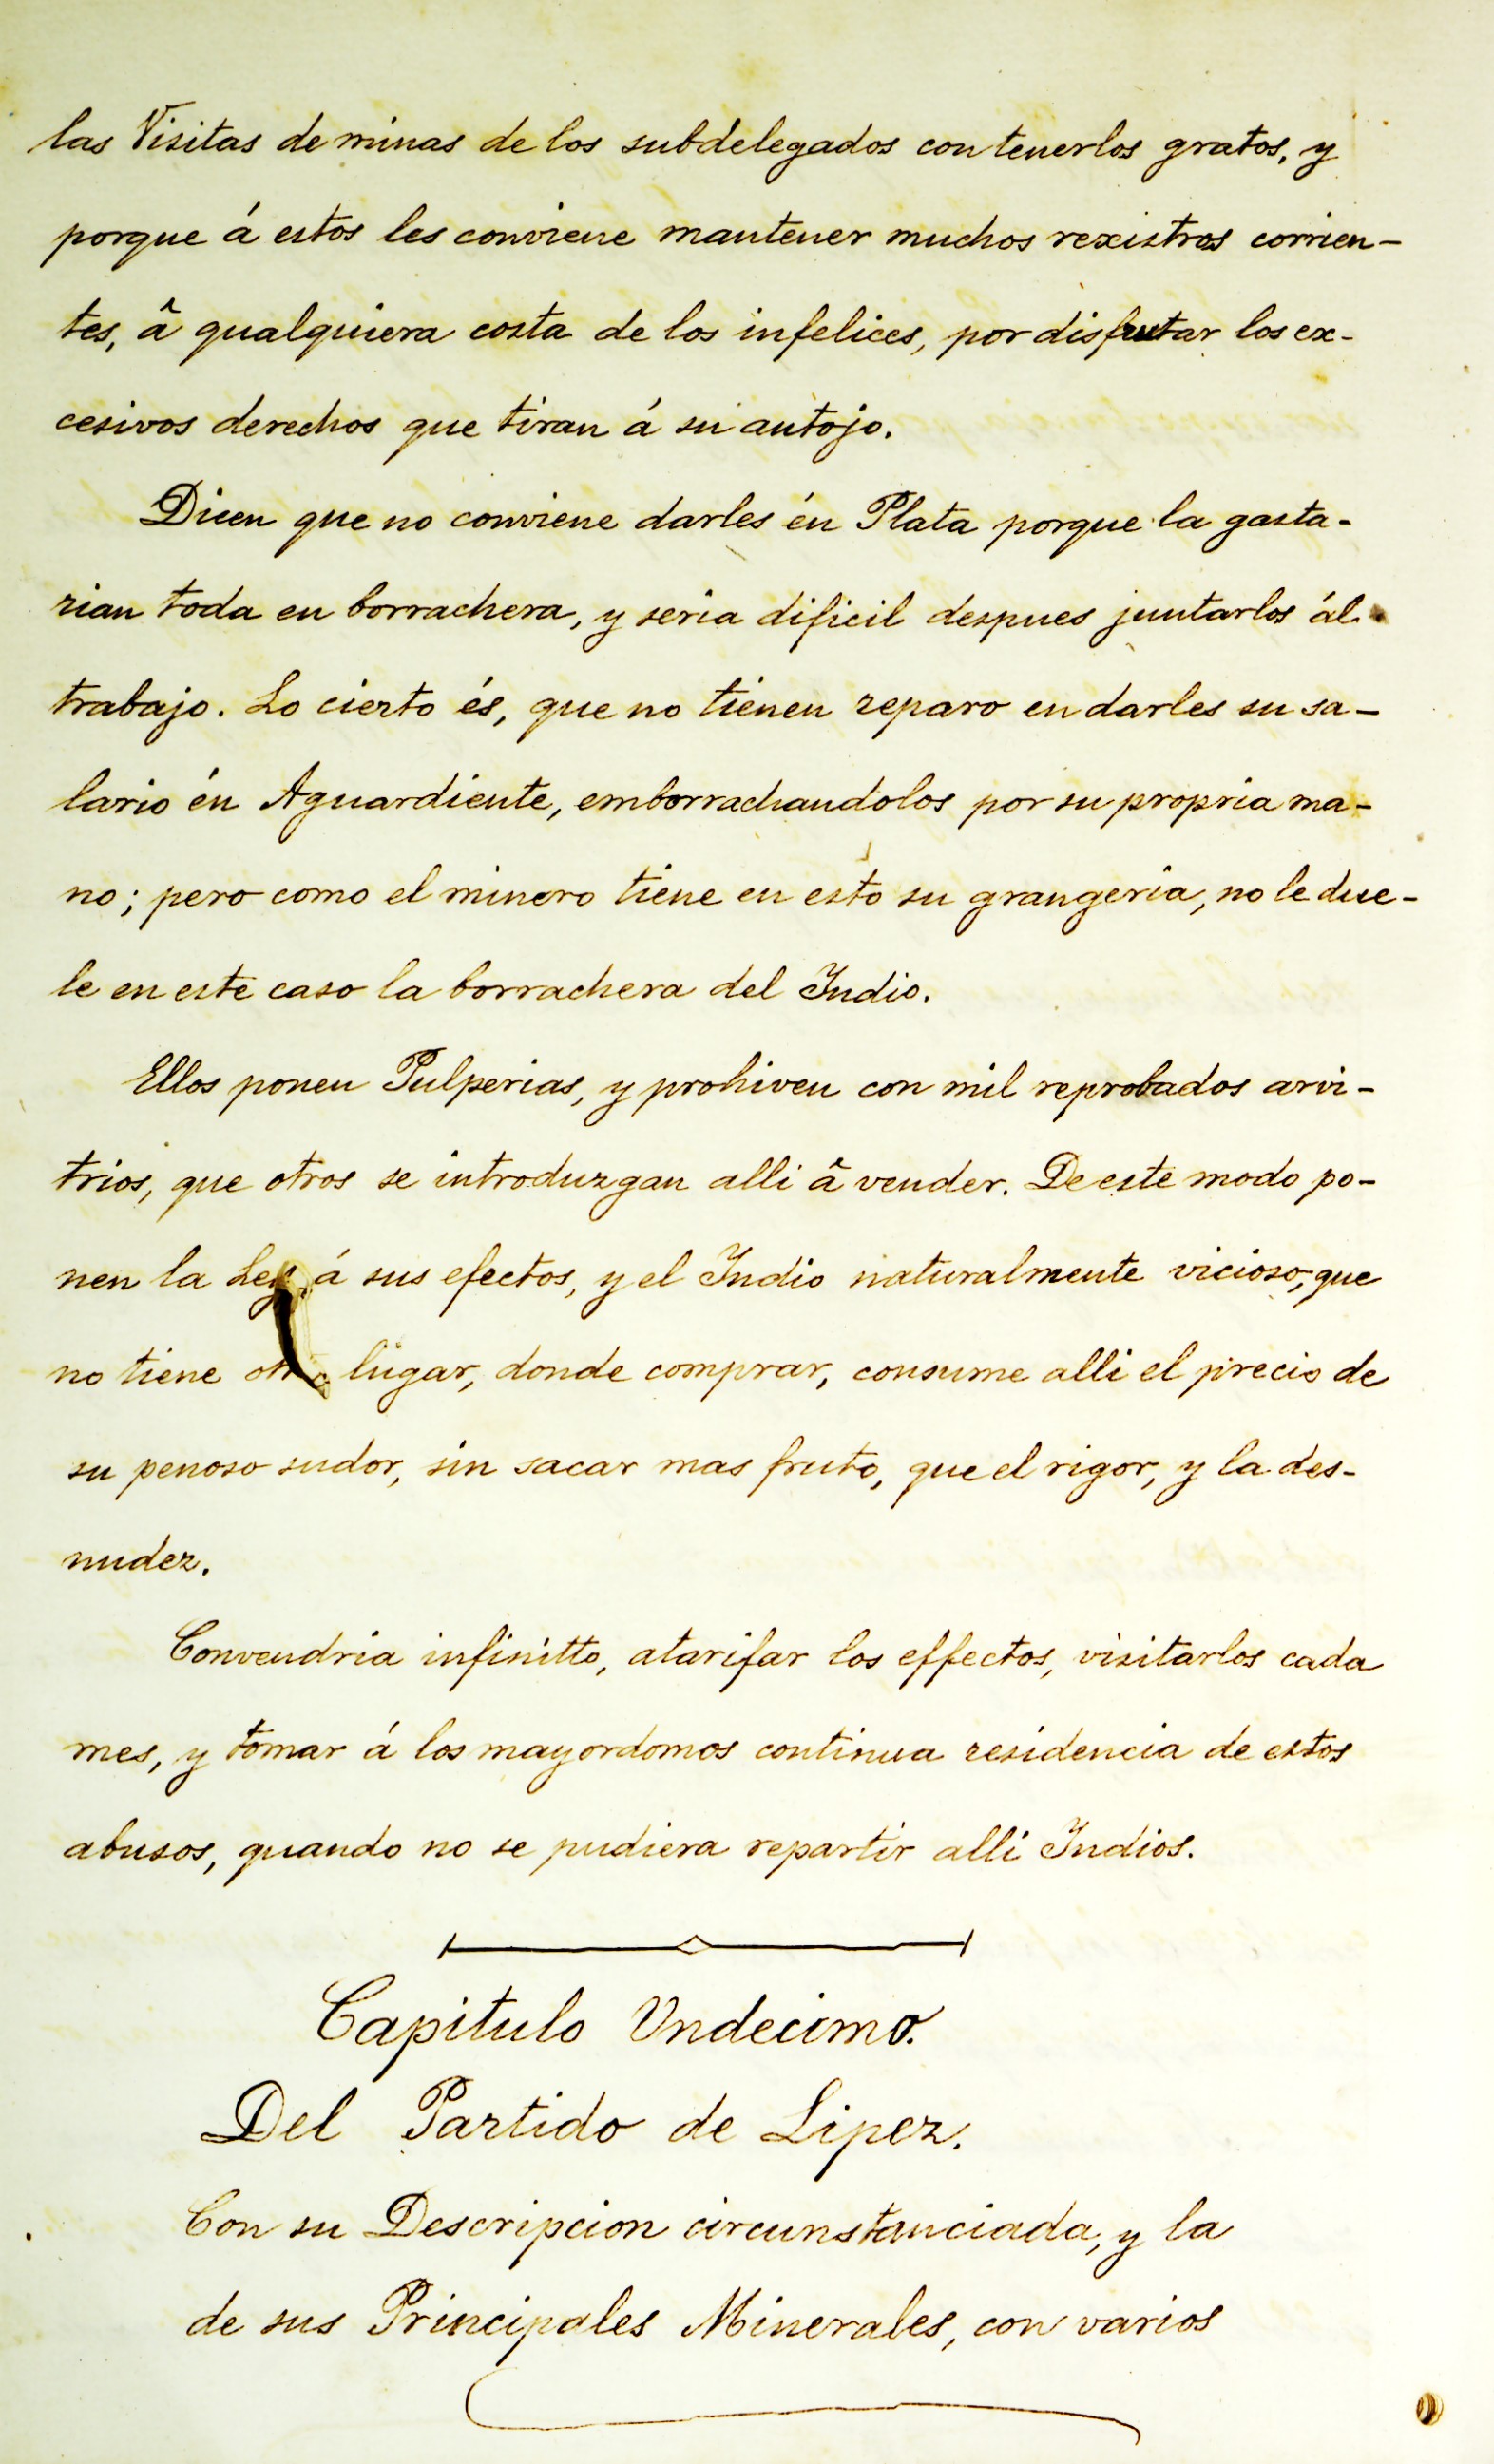 las Visitas de minas de los subdelegados con tenerlos gratos, y
porque á estos les conviene mantener muchos rexistros corrien-
tes, â qualquiera costa de los infelices, por disfrutar los ex-
cesivos derechos que tiran á su antojo.
Dicen que no conviene darles én Plata porque la gasta-
rian toda en borrachera, y seria dificil despues juntarlos ál
trabajo. Lo cierto és, que no tienen reparo en darles su sa-
lario én Aguardiente, emborrachandolos por su propria ma-
no; pero como el minero tiene en esto su grangeria, no le due-
le en este caso la borrachera del Indio.
Ellos ponen Pulperias, y prohiven con mil reprobados arvi-
trios, que otros se introduzgan alli â vender. De este modo po-
nen la Ley á sus efectos, y el Indio naturalmente vicioso, que
no tiene otro lugar, donde comprar, consume alli el precio de
su penoso sudor, sin sacar mas fruto, que el rigor, y la des-
nudez.
Convendria infinitto, atarifar los effectos, visitarlos cada
mes, y tomar á los mayordomos continua residencia de estos
abusos, quando no se pudiera repartir alli Indios.
Capitulo Undecimo.
Del Partido de Lipez.
Con su Descripcion circunstanciada, y la
de sus Principales Minerales, con varios